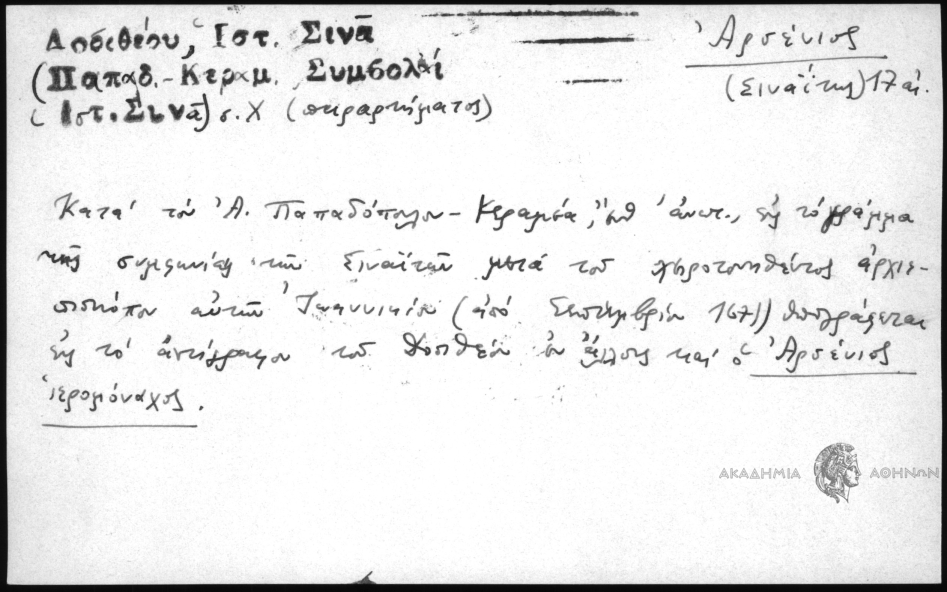 Δοσιθέου, Ιστ. Σινᾶ
(Παπαδ.-Κεραμ. Συμβολαί
Ἱστ. Σινᾶ) σ. Χ (παραρτήματος)
Ἀρσένιος
(Σιναΐτης) 17 αἰ.
Κατά τόν Ἀ. Παπαδόπουλον-Κεραμέα, ἔνθ' ἀνωτ., εἰς τό γράμμα
τῆς συμφωνίας τῶν Σιναϊτῶν μετά τοῦ χειροτονηθέντος ἀρχιε-
πισκόπου αὐτῶν Ἰωαννικίου (ἀπό Σεπτεμβρίου 1671) ὑπογράφεται
εἰς τό ἀντίγραφον τοῦ Δοσιθέου ἐν ἄλλοις καί ὁ Ἀρσένιος
ἱερομόναχος.
ΑΚΑΔΗΜΙΑ ΑΘΗΝΩΝ